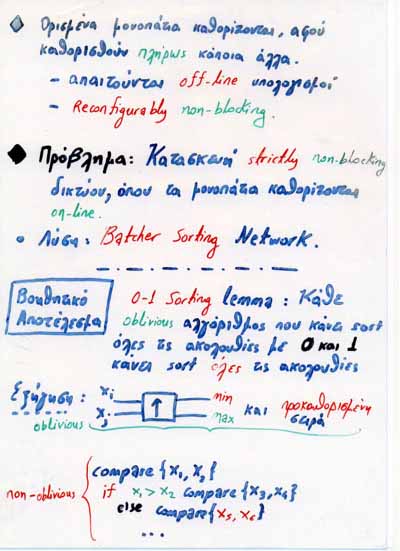 Ορισμένα μονοπάτια καθορίζονται, αφού
καθορισθούν πλήρως κάποια άλλα.
- απαιτούνται off-line υπολογισμοί
- Reconfigurably non-blocking.
Πρόβλημα: Κατασκευή strictly non-blocking
δικτύου, όπου τα μονοπάτια καθορίζονται
on-line.
• Λύση: Batcher Sorting Network.
Βοηθητικό Αποτέλεσμα
0-1 Sorting lemma: Κάθε
oblivious αλγόριθμος που κάνει sort
όλες τις ακολουθίες με 0 και 1
κάνει sort όλες τις ακολουθίες
Εξήγηση: xi xj ↑ min max και προκαθορισμένη σειρά
oblivious
non-oblivious
compare {x1, x2}
if x1 > x2 compare {x3, x4}
else compare {x5, x6}
...